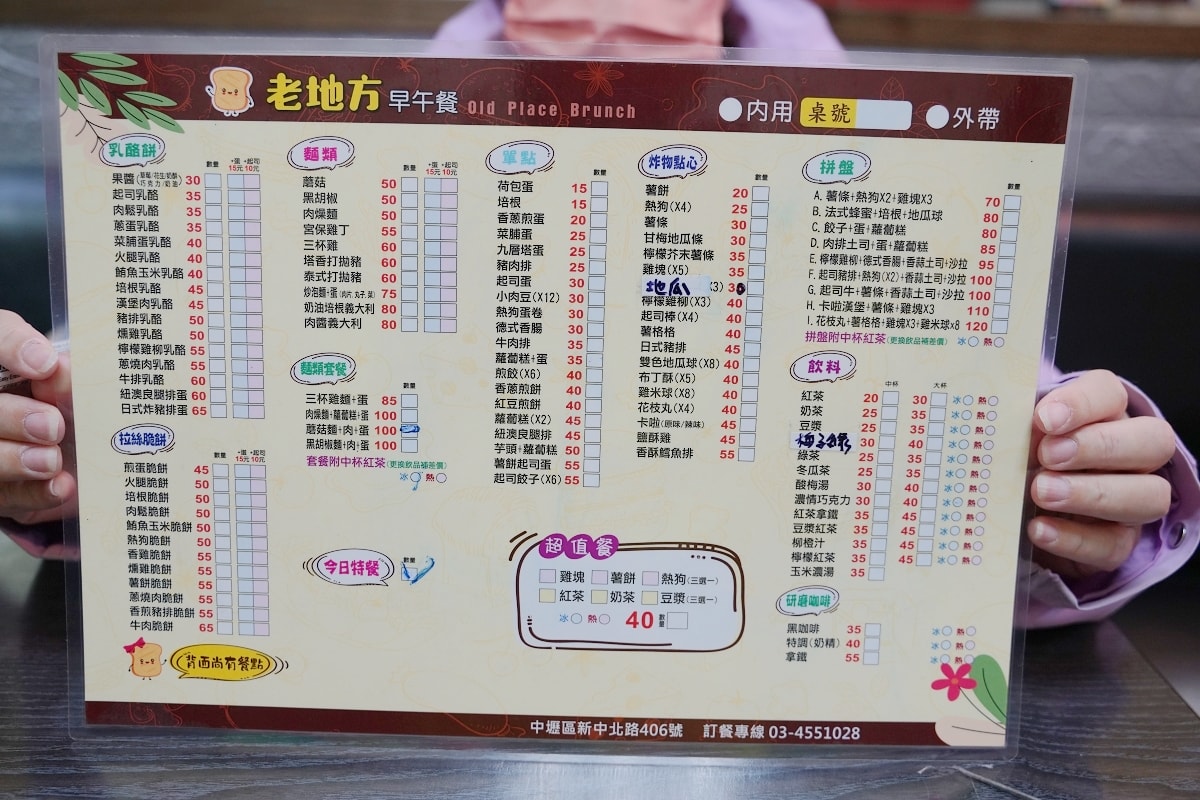 老地方 早午餐 Old Place Brunch
內用 桌號 外帶
乳酪餅
數量 +蛋15元 +起司10元
果醬 30
起司乳酪 35
肉鬆乳酪 35
蔥蛋乳酪 35
菜脯蛋乳酪 40
火腿乳酪 40
鮪魚玉米乳酪 40
培根乳酪 45
漢堡肉乳酪 45
豬排乳酪 50
燻雞乳酪 50
檸檬雞柳乳酪 55
蔥燒肉乳酪 55
牛排乳酪 60
紐澳良腿排蛋 60
日式炸豬排蛋 65
拉絲脆餅
數量 +蛋15元 +起司10元
煎蛋脆餅 45
火腿脆餅 50
培根脆餅 50
肉鬆脆餅 50
鮪魚玉米脆餅 50
熱狗脆餅 50
香雞脆餅 55
燻雞脆餅 55
薯餅脆餅 55
蔥燒肉脆餅 55
香煎豬排脆餅 55
牛肉脆餅 65
背面尚有餐點
麵類
數量 +蛋15元 +起司10元
蘑菇 50
黑胡椒 50
肉燥麵 50
宮保雞丁 55
三杯雞 60
塔香打拋豬 60
泰式打拋豬 60
炒泡麵+蛋(肉片,丸子,菜) 75
奶油培根義大利 80
肉醬義大利 80
麵類套餐
數量
三杯雞麵+蛋 85
肉燥麵+蘿蔔糕+蛋 100
蘑菇麵+肉+蛋 100
黑胡椒麵+肉+蛋 100
套餐附中杯紅茶(更換飲品補差價)
冰 熱
今日特餐 數量
單點
數量
荷包蛋 15
培根 15
香蔥煎蛋 20
菜脯蛋 25
九層塔蛋 25
豬肉排 25
起司蛋 30
小肉豆(X12) 30
熱狗蛋卷 30
德式香腸 30
牛肉排 35
蘿蔔糕+蛋 35
煎餃(X6) 40
香蔥煎餅 40
紅豆煎餅 40
蘿蔔糕(X2) 45
紐澳良腿排 45
芋頭+蘿蔔糕 50
薯餅起司蛋 55
起司餃子(X6) 55
炸物點心
數量
薯餅 20
熱狗(X4) 25
薯條 30
甘梅地瓜條 30
檸檬芥末薯條 35
雞塊(X5) 35
地瓜 X3) 30
檸檬雞柳(X3) 40
起司棒(X4) 40
薯格格 40
日式豬排 45
雙色地瓜球(X8) 40
布丁酥(X5) 40
雞米球(X8) 40
花枝丸(X4) 40
卡啦(原味/辣味) 45
鹽酥雞 45
香酥鱈魚排 55
超值餐
雞塊 薯餅 熱狗(三選一)
紅茶 奶茶 豆漿(三選一)
冰 熱 40 數量
拼盤
數量
A. 薯條+熱狗X2+雞塊X3 70
B. 法式蜂蜜+培根+地瓜球 80
C. 餃子+蛋+蘿蔔糕 80
D. 肉排土司+蛋+蘿蔔糕 85
E. 檸檬雞柳+德式香腸+香蒜土司+沙拉 95
F. 起司豬排+熱狗(X2)+香蒜土司+沙拉 100
G. 起司牛+薯條+香蒜土司+沙拉 100
H. 卡啦漢堡+薯條+雞塊X3 110
I. 花枝丸+薯格格+雞塊X3+雞米球x8 120
拼盤附中杯紅茶(更換飲品補差價) 冰 熱
飲料
中杯 大杯
紅茶 20 30 冰 熱
奶茶 25 35 冰 熱
豆漿 25 35 冰 熱
梅子綠 30 40 冰 熱
綠茶 25 35 冰 熱
冬瓜茶 25 35 冰 熱
酸梅湯 30 40 冰 熱
濃情巧克力 30 40 冰 熱
紅茶拿鐵 35 45 冰 熱
豆漿紅茶 35 45 冰 熱
柳橙汁 35 45 冰 熱
檸檬紅茶 35 45 冰 熱
玉米濃湯 35
研磨咖啡
黑咖啡 35 冰 熱
特調(奶精) 40 冰 熱
拿鐵 55 冰 熱
中壢區新中北路406號 訂餐專線 03-4551028